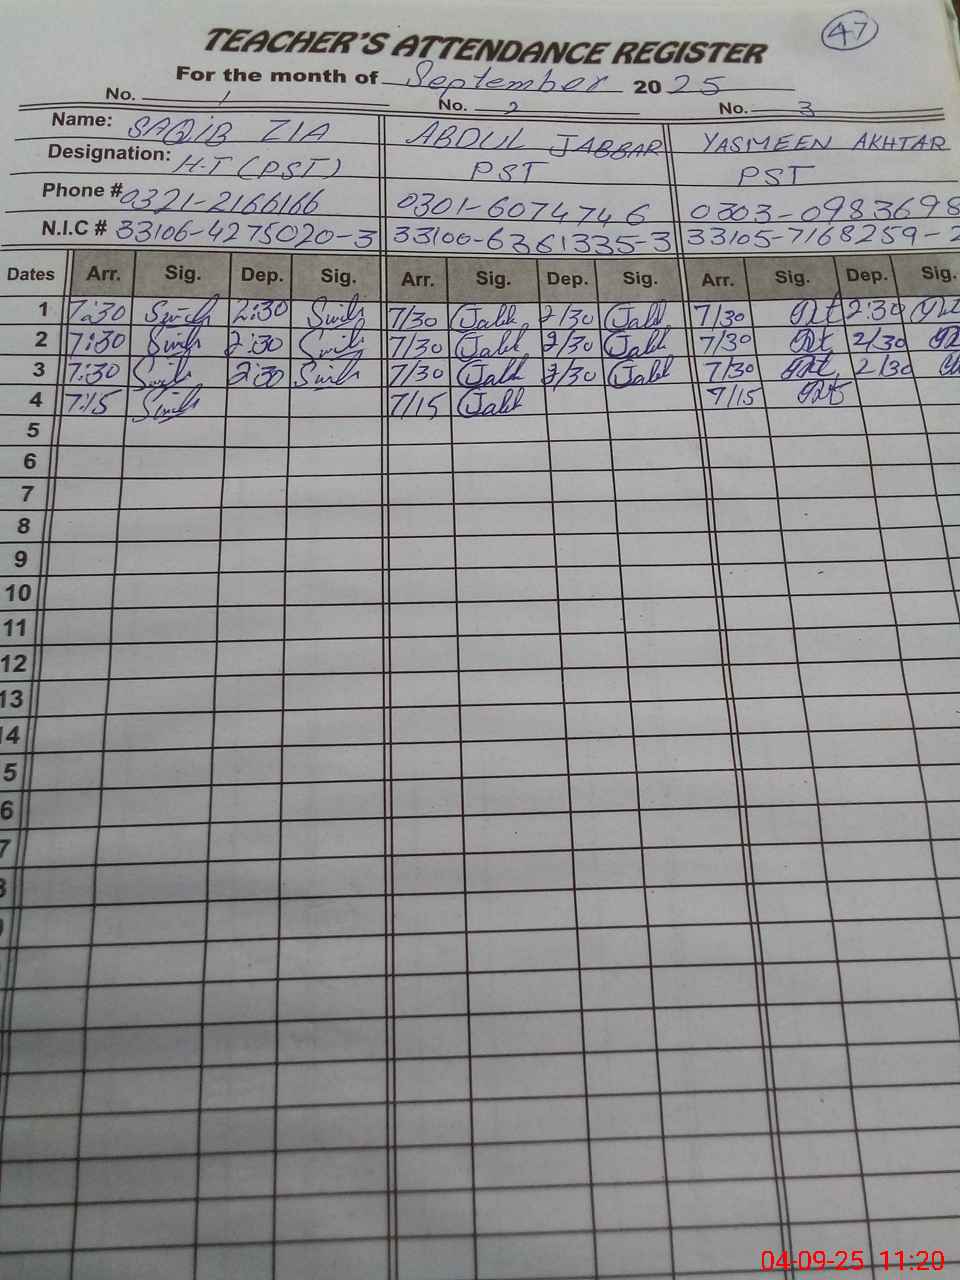 47
TEACHER'S ATTENDANCE REGISTER
For the month of September 2025
No. 1 No. 2 No. 3
Name: SAQIB ZIA ABDUL JABBAR YASMEEN AKHTAR
Designation: H-T (PST) PST PST
Phone # 0321-2166166 0301-6074746 0303-0983698
N.I.C # 33106-4275020-3 33100-6361335-3 33105-7168259-2
Dates Arr. Sig. Dep. Sig. Arr. Sig. Dep. Sig. Arr. Sig. Dep. Sig.
1 7:30 2:30 7/30 Jabb 2/30 Jabb 7/30 2:30
2 7:30 2:30 7/30 Jabb 2/30 Jabb 7/30 2/30
3 7:30 2:30 7/30 Jabb 2/30 Jabb 7/30 2/30
4 7:15 7/15 Jabb 7/15
5
6
7
8
9
10
11
12
13
14
5
6
7
8
04-09-25 11:20